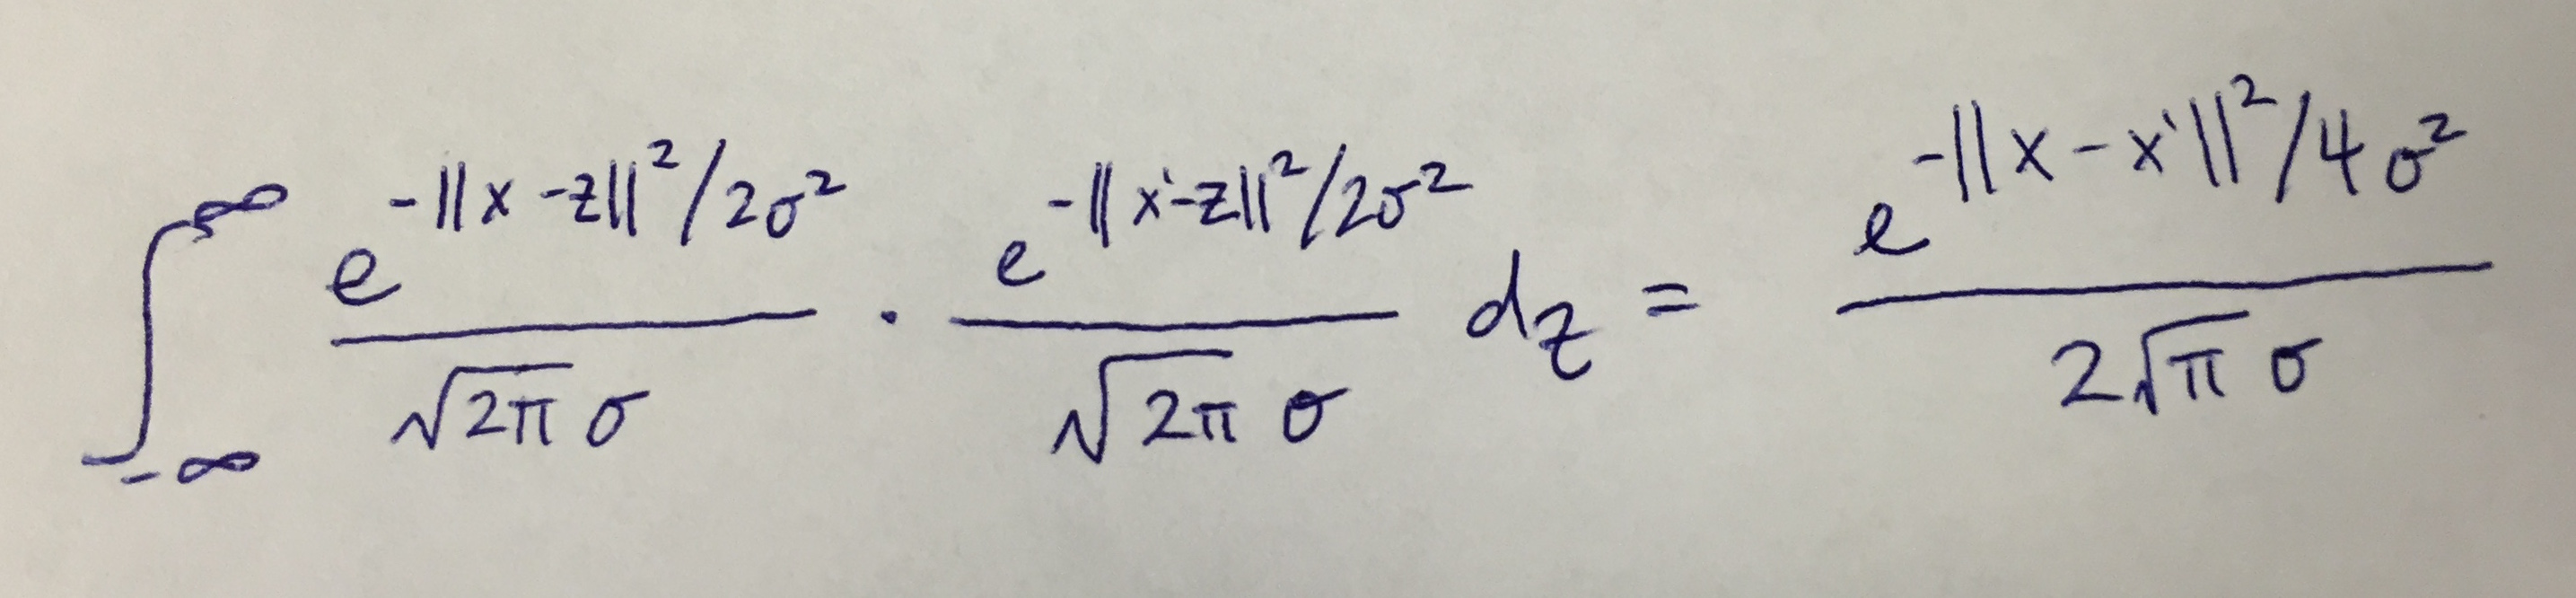 ∫_{-∞}^{∞} \frac{e^{-||x-z||^2/2σ^2}}{\sqrt{2π} σ} · \frac{e^{-||x'-z||^2/2σ^2}}{\sqrt{2π} σ} dz = \frac{e^{-||x-x'||^2/4σ^2}}{2\sqrt{π} σ}